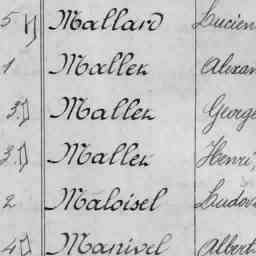 5 Mallard Lucien
1 Maller Alexan
3 Maller George
3 Maller Henri,
2 Maloisel Ludov
4 Manivel Albert